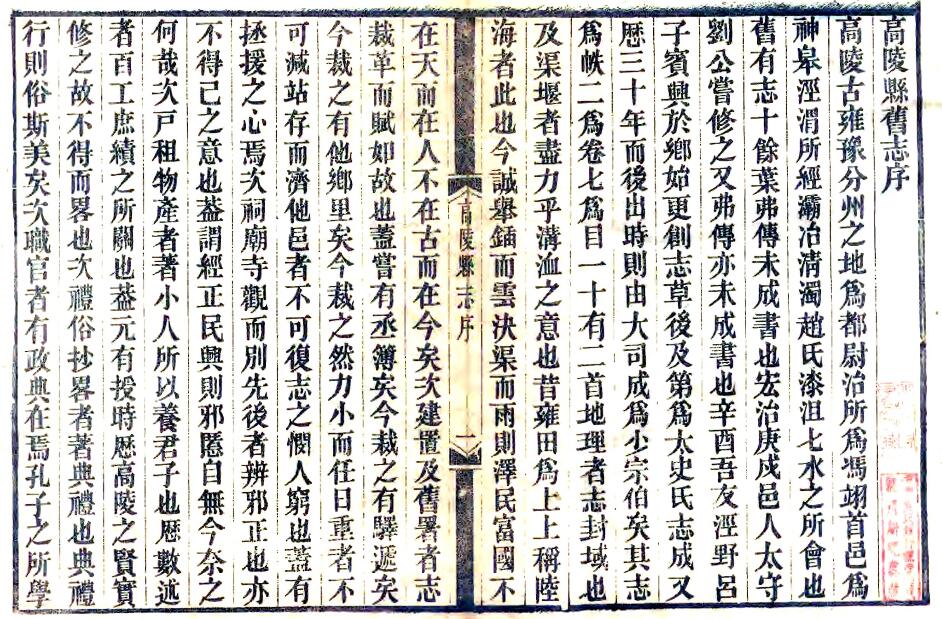 高陵縣舊志序
高陵古雍豫分州之地爲都尉治所爲馮翊首邑爲
神皋涇渭所經灞冶淸濁趙氏漆沮七水之所會也
舊有志十餘葉弗傳未成書也宏治庚戍邑人太守
劉公嘗修之又弗傳亦未成書也辛酉吾友涇野呂
子賓興於鄉始更創志草後及第爲太史氏志成又
歴三十年而後出時則由大司成爲少宗伯矣其志
爲帙二爲卷七爲目一十有二首地理者志封域也
及渠堰者盡力乎溝洫之意也昔雍田爲上上稱陸
海者此也今誠舉鍤而雲決渠而雨則澤民富國不
高陵縣志序
一
在天而在人不在古而在今矣次建置及舊署者志
裁革而賦如故也蓋嘗有丞簿矣今裁之有驛遞矣
今裁之有他鄉里矣今裁之然力小而任日重者不
可減站存而濟他邑者不可復志之憫人窮也蓋有
拯援之心焉次祠廟寺觀而別先後者辨邪正也亦
不得已之意也葢謂經正民興則邪慝自無今奈之
何哉次戸租物產者著小人所以養君子也歴數述
者百工庶績之所關也葢元有授時歴高陵之賢實
修之故不得而畧也次禮俗抄畧者著典禮也典禮
行則俗斯美矣次職官者有政典在焉孔子之所學